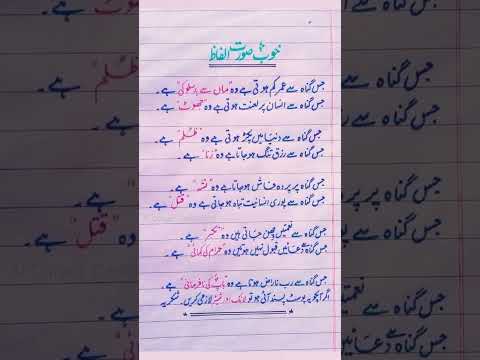 خوب صورت الفاظ
جس گناہ سے عمر کم ہوتی ہے وہ "ماں سے بدسلوکی" ہے۔
جس گناہ سے انسان پر لعنت ہوتی ہے وہ "جھوٹ" ہے۔
جس گناہ سے دنیا میں پکڑ ہوتی ہے وہ "ظُلم" ہے۔
جس گناہ سے رزق تنگ ہو جاتا ہے وہ "زنا" ہے۔
جس گناہ پر پردہ فاش ہو جاتا ہے وہ "نشہ" ہے۔
جس گناہ سے پوری انسانیت تباہ ہو جاتی ہے وہ "قتل" ہے۔
جس گناہ سے نعمتیں چھن جاتی ہیں وہ "تکبر" ہے۔
جس گناہ سے دعائیں قبول نہیں ہوتیں وہ "حرام کی کمائی" ہے۔
جس گناہ سے رب ناراض ہوتا ہے وہ "باپ کی نافرمانی" ہے۔
اگر آپکو یہ پوسٹ پسند آئی ہو تو لائک اور شیئر لازمی کریں۔ شکریہ